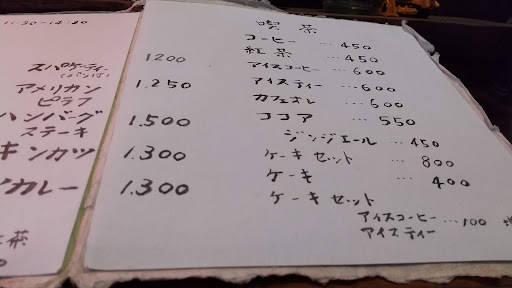 11:30-14:20
スパゲティー
1200
アメリカン
ピラフ
1.250
ハンバーグ
ステーキ
1.500
キンカツ
1.300
カレー
1.300
茶
喫茶
コーヒー …450
紅茶 …450
アイスコーヒー …600
アイスティー …600
カフェオレ …600
ココア …550
ジンジエール …450
ケーキセット …800
ケーキ …400
ケーキセット
アイスコーヒー …100
アイスティー